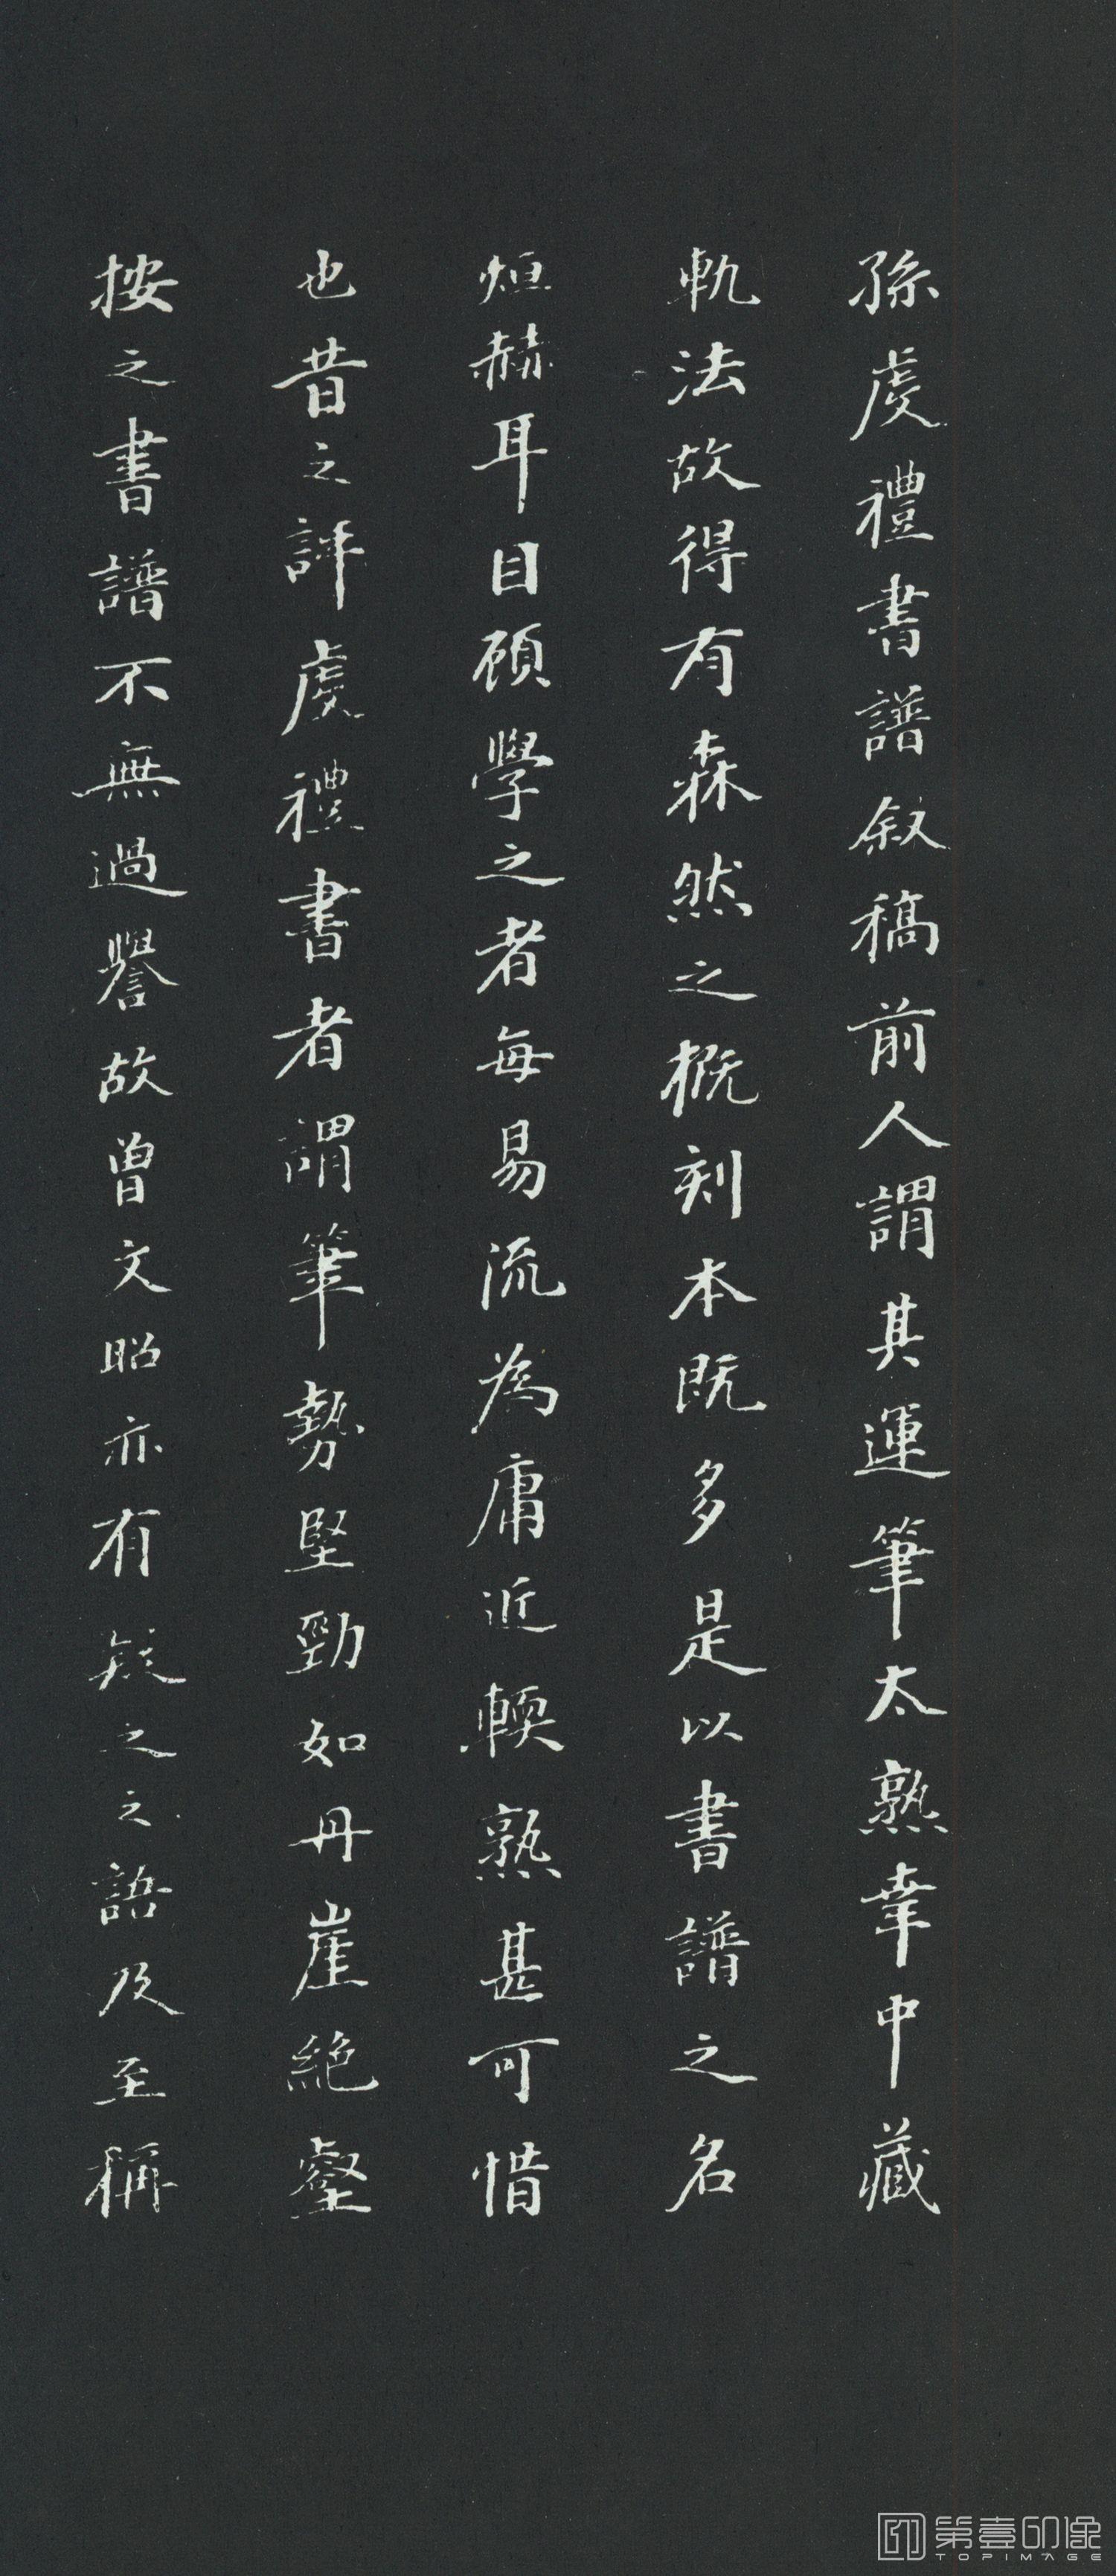 孫虔禮書譜叙稿前人謂其運筆太熟幸中藏
軌法故得有森然之概刻本既多是以書譜之名
烜赫耳目顧學之者每易流為庸近輭熟甚可惜
也昔之評虔禮書者謂筆勢堅勁如丹崖絕壑
按之書譜不無過譽故曾文昭亦有疑之之語及至稱
第壹印像
TOPIMAGE